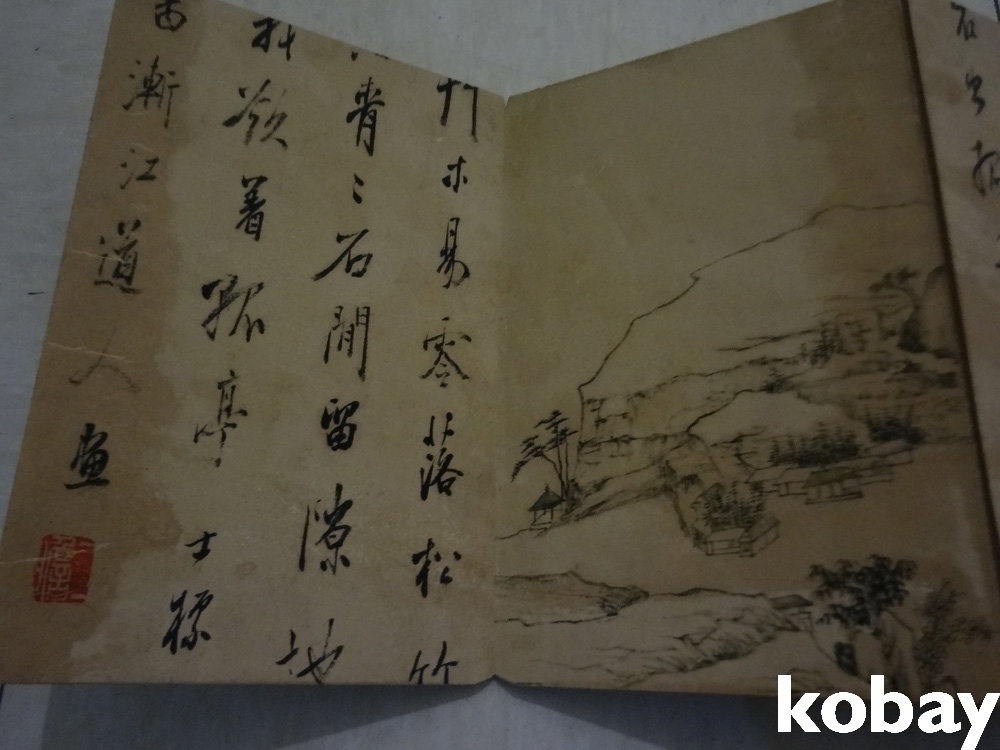 石
木易零落松竹
青〻石間留隙地
欲着孤亭 士標
漸江道人畫
kobay